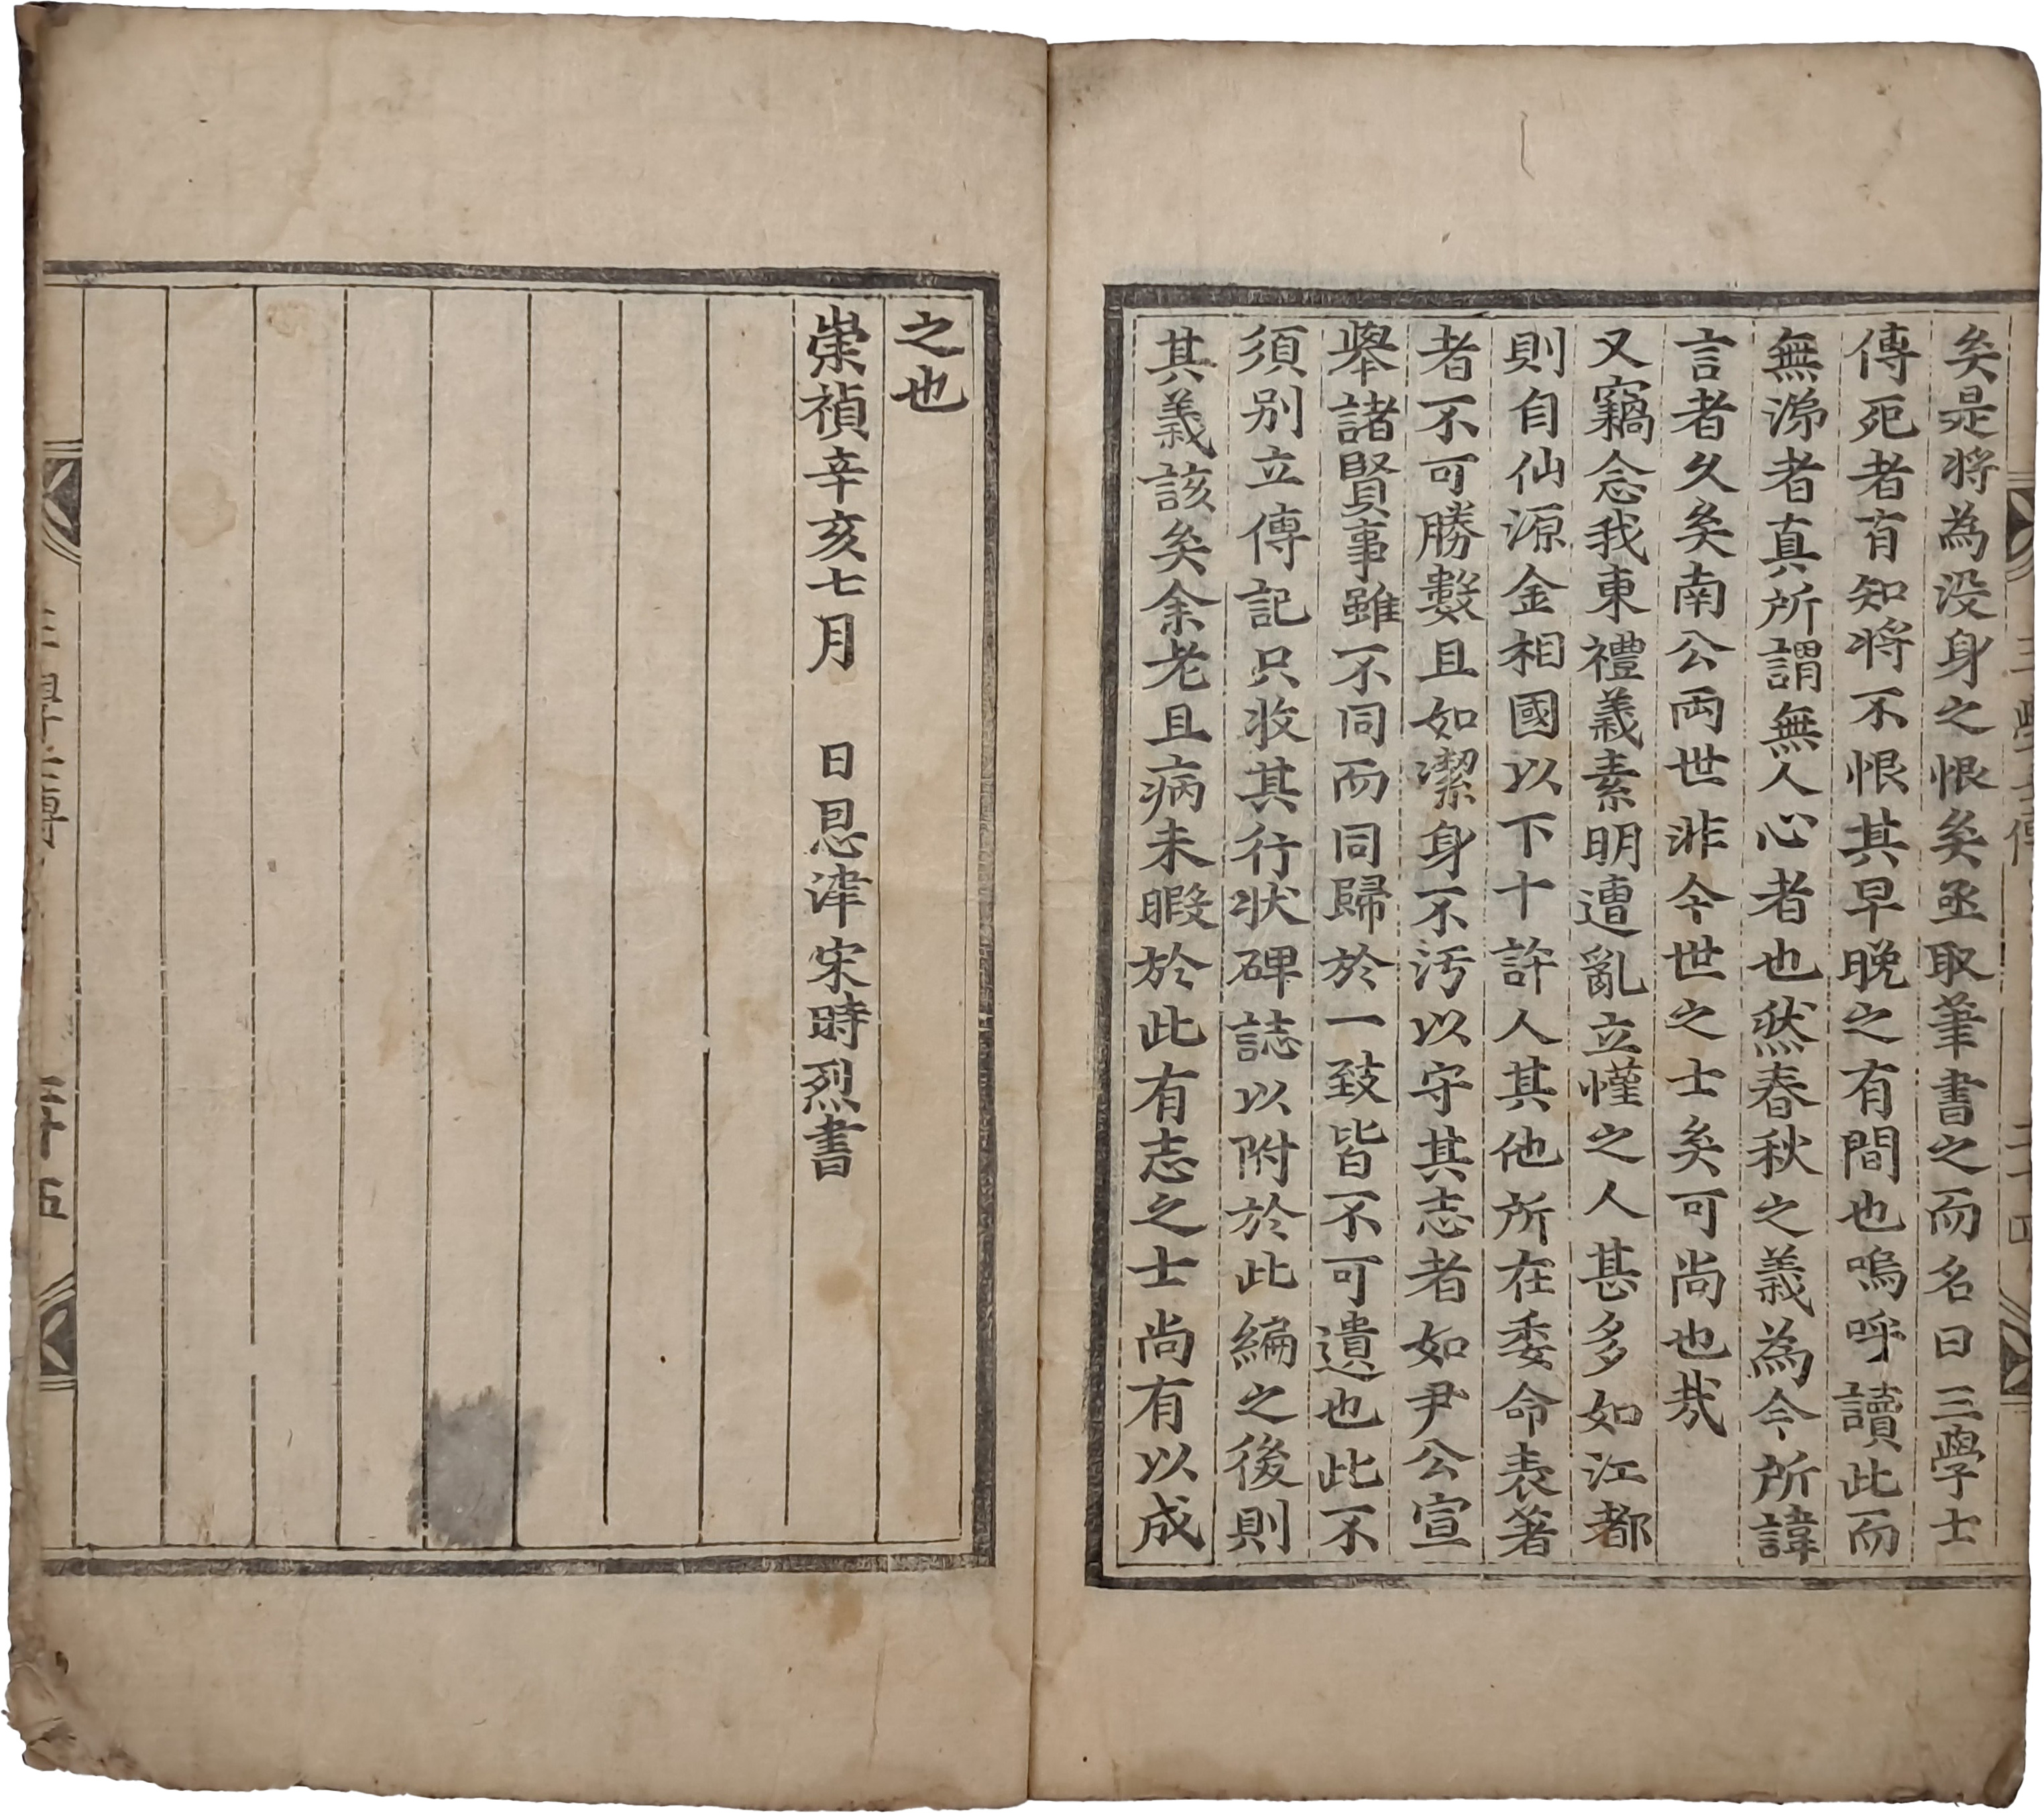 三學士傳 二十四
矣是將為没身之恨矣亟取筆書之而名曰三學士
傳死者有知將不恨其早晚之有間也嗚呼讀此而
無涕者真所謂無人心者也然春秋之義為今所諱
言者久矣南公兩世非今世之士矣可尚也㦲
又竊念我東禮義素明遭亂立慬之人甚多如江都
則自仙源金相國以下十許人其他所在委命表著
者不可勝數且如潔身不汚以守其志者如尹公宣
擧諸賢事雖不同而同歸於一致皆不可遺也此不
須別立傳記只收其行狀碑誌以附於此編之後則
其義該矣余老且病未暇於此有志之士尚有以成
之也
崇禎辛亥七月　日恩津宋時烈書
三學士傳 二十五